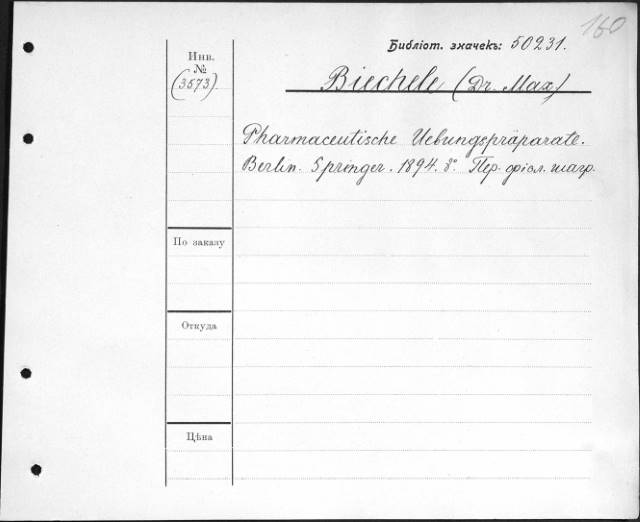 160
Библіот. значекъ: 50231.
Инв.
№
(3573).
Biechele (Dr. Max)
Pharmaceutische Uebungspräparate.
Berlin. Springer. 1894. 8º. Пер. фіол. шагр.
По заказу
Откуда
Цѣна